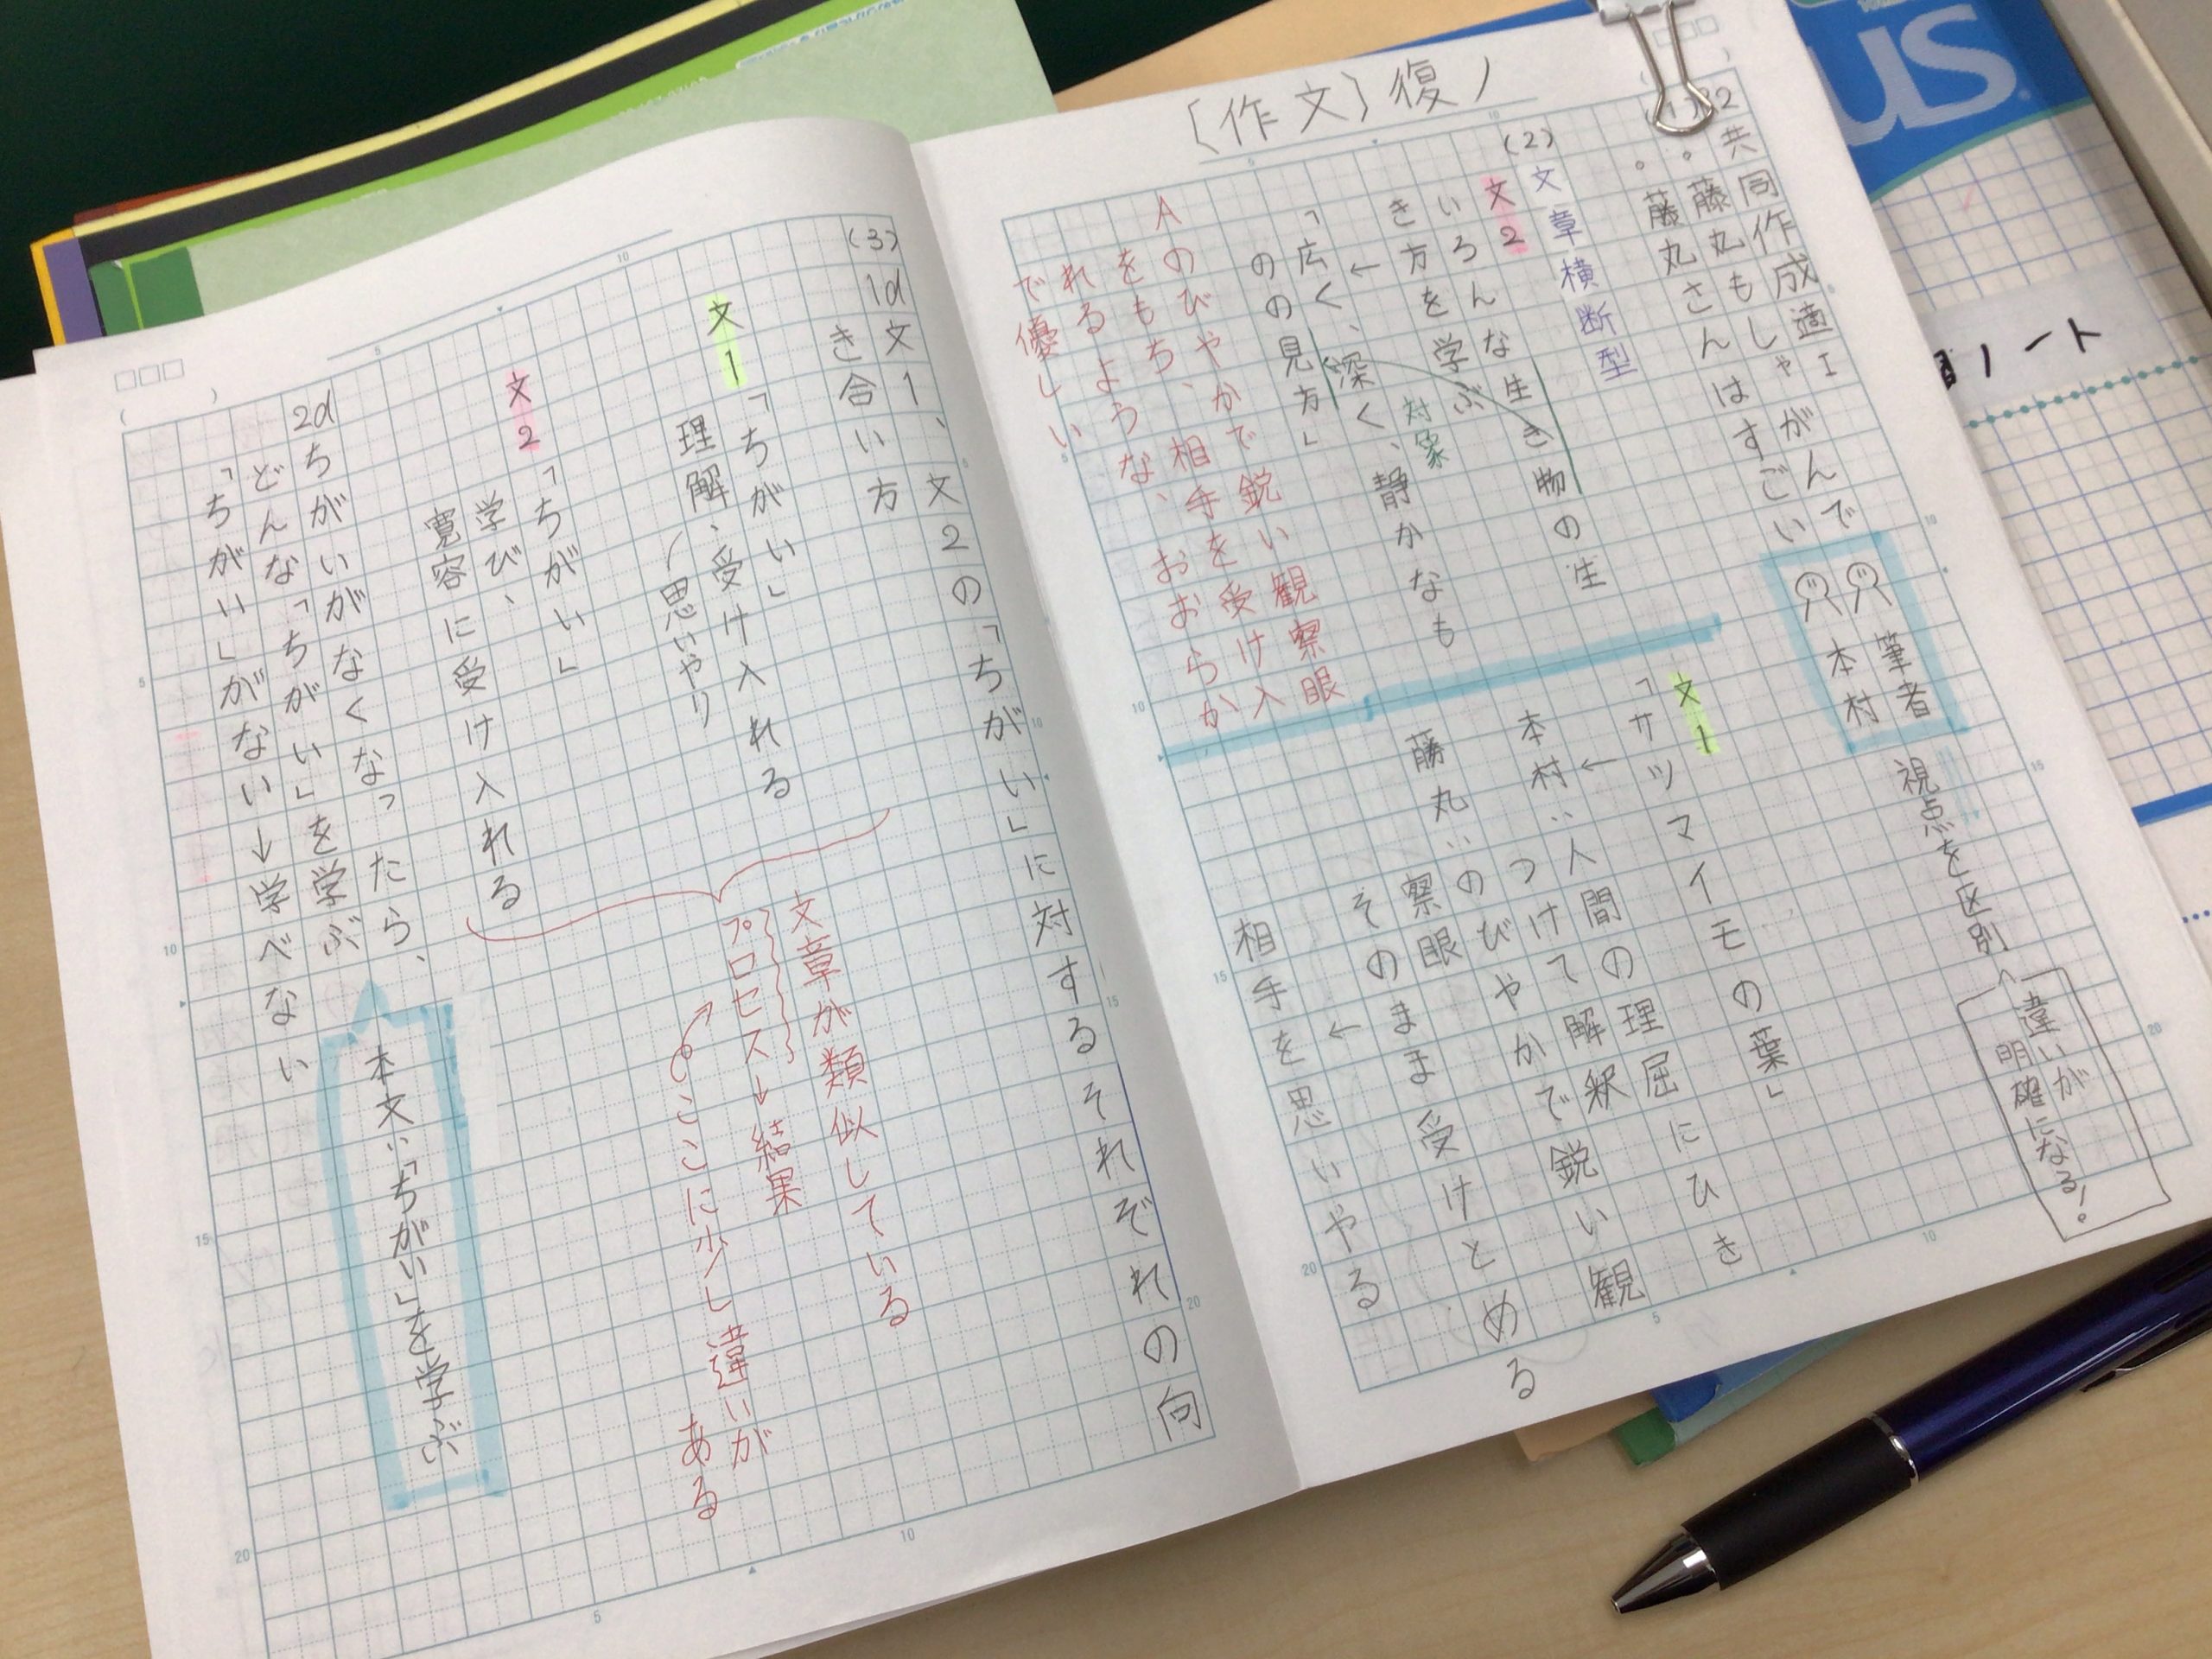 〔作文〕復ノ
(1)R2共同作成適I
。藤丸もしゃがんで
。藤丸さんはすごい
筆者
本村
視点を区別
違いが
明確になる!
(2)文章横断型
文2
いろんな生き物の生
き方を学ぶ
対象
←
「広く、深く、静かなも
のの見方」
Aのびやかで鋭い観察眼
をもち、相手を受け入
れるような、おおらか
で優しい
文1
「サツマイモの葉」
←
本村:人間の理屈にひき
つけて解釈
藤丸:のびやかで鋭い観
察眼
そのまま受けとめる
←
相手を思いやる
(3)
1d文1、文2の「ちがい」に対するそれぞれの向
き合い方
文1
「ちがい」
理解、受け入れる
思いやり
文2
「ちがい」
学び、
寛容に受け入れる
文章が類似している
プロセス→結果
ここに少し違いが
ある
2dちがいがなくなったら、
どんな「ちがい」を学ぶ
「ちがい」がない→学べない
本文:「ちがい」を学ぶ
ノート
US